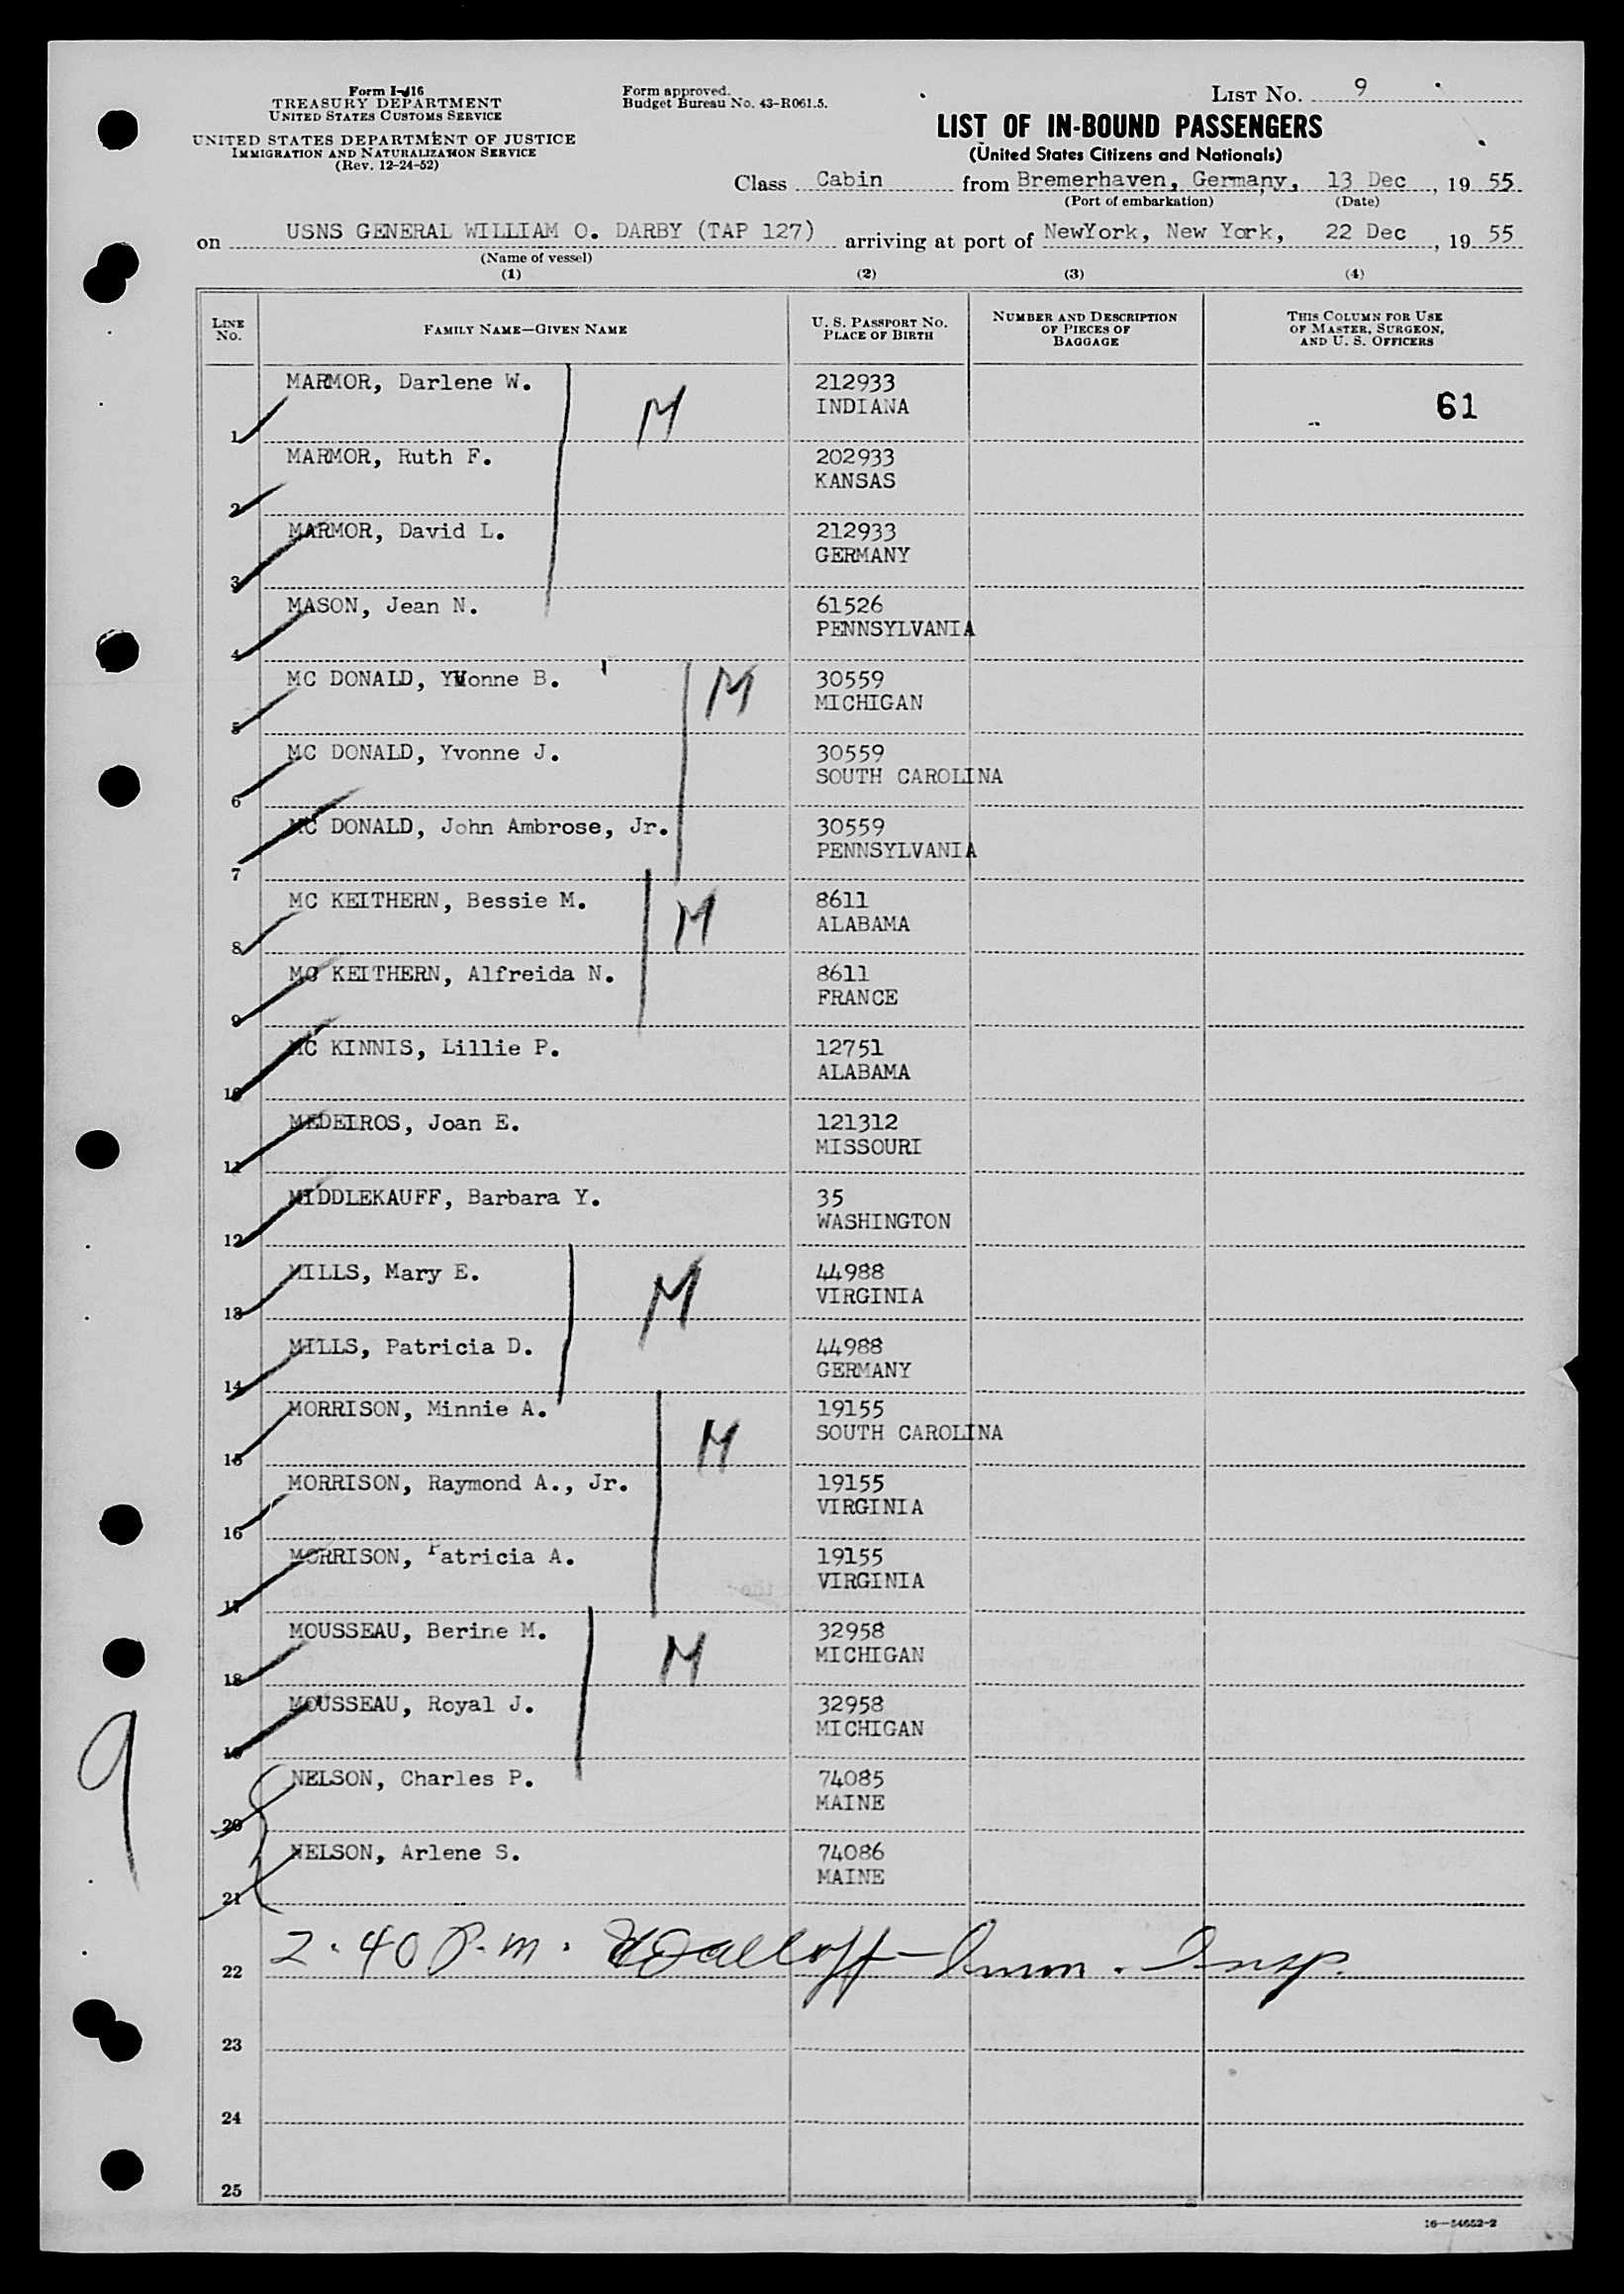 Form I-416
TREASURY DEPARTMENT
UNITED STATES CUSTOMS SERVICE
UNITED STATES DEPARTMENT OF JUSTICE
IMMIGRATION AND NATURALIZATION SERVICE
(Rev. 12-24-52)
Form approved.
Budget Bureau No. 43-R061.5.
LIST No. 9
LIST OF IN-BOUND PASSENGERS
(United States Citizens and Nationals)
Class Cabin from Bremerhaven, Germany, 13 Dec, 19 55
(Port of embarkation) (Date)
on USNS GENERAL WILLIAM O. DARBY (TAP 127) arriving at port of NewYork, New York, 22 Dec, 19 55
(Name of vessel)
(1) (2) (3) (4)
LINE No. FAMILY NAME—GIVEN NAME U. S. PASSPORT NO. PLACE OF BIRTH NUMBER AND DESCRIPTION OF PIECES OF BAGGAGE THIS COLUMN FOR USE OF MASTER, SURGEON, AND U. S. OFFICERS
MARMOR, Darlene W. 212933
1 M INDIANA 61
MARMOR, Ruth F. 202933
2 KANSAS
MARMOR, David L. 212933
3 GERMANY
MASON, Jean N. 61526
4 PENNSYLVANIA
MC DONALD, Yvonne B. M 30559
5 MICHIGAN
MC DONALD, Yvonne J. 30559
6 SOUTH CAROLINA
MC DONALD, John Ambrose, Jr. 30559
7 PENNSYLVANIA
MC KEITHERN, Bessie M. M 8611
8 ALABAMA
MC KEITHERN, Alfreida N. 8611
9 FRANCE
MC KINNIS, Lillie P. 12751
10 ALABAMA
MEDEIROS, Joan E. 121312
11 MISSOURI
MIDDLEKAUFF, Barbara Y. 35
12 WASHINGTON
MILLS, Mary E. M 44988
13 VIRGINIA
MILLS, Patricia D. 44988
14 GERMANY
MORRISON, Minnie A. M 19155
15 SOUTH CAROLINA
MORRISON, Raymond A., Jr. 19155
16 VIRGINIA
MORRISON, Patricia A. 19155
17 VIRGINIA
MOUSSEAU, Berine M. M 32958
18 MICHIGAN
MOUSSEAU, Royal J. 32958
19 MICHIGAN
9
NELSON, Charles P. 74085
20 MAINE
NELSON, Arlene S. 74086
21 MAINE
22 2.40 P.m. Imm. Insp.
23
24
25
16—54652-2